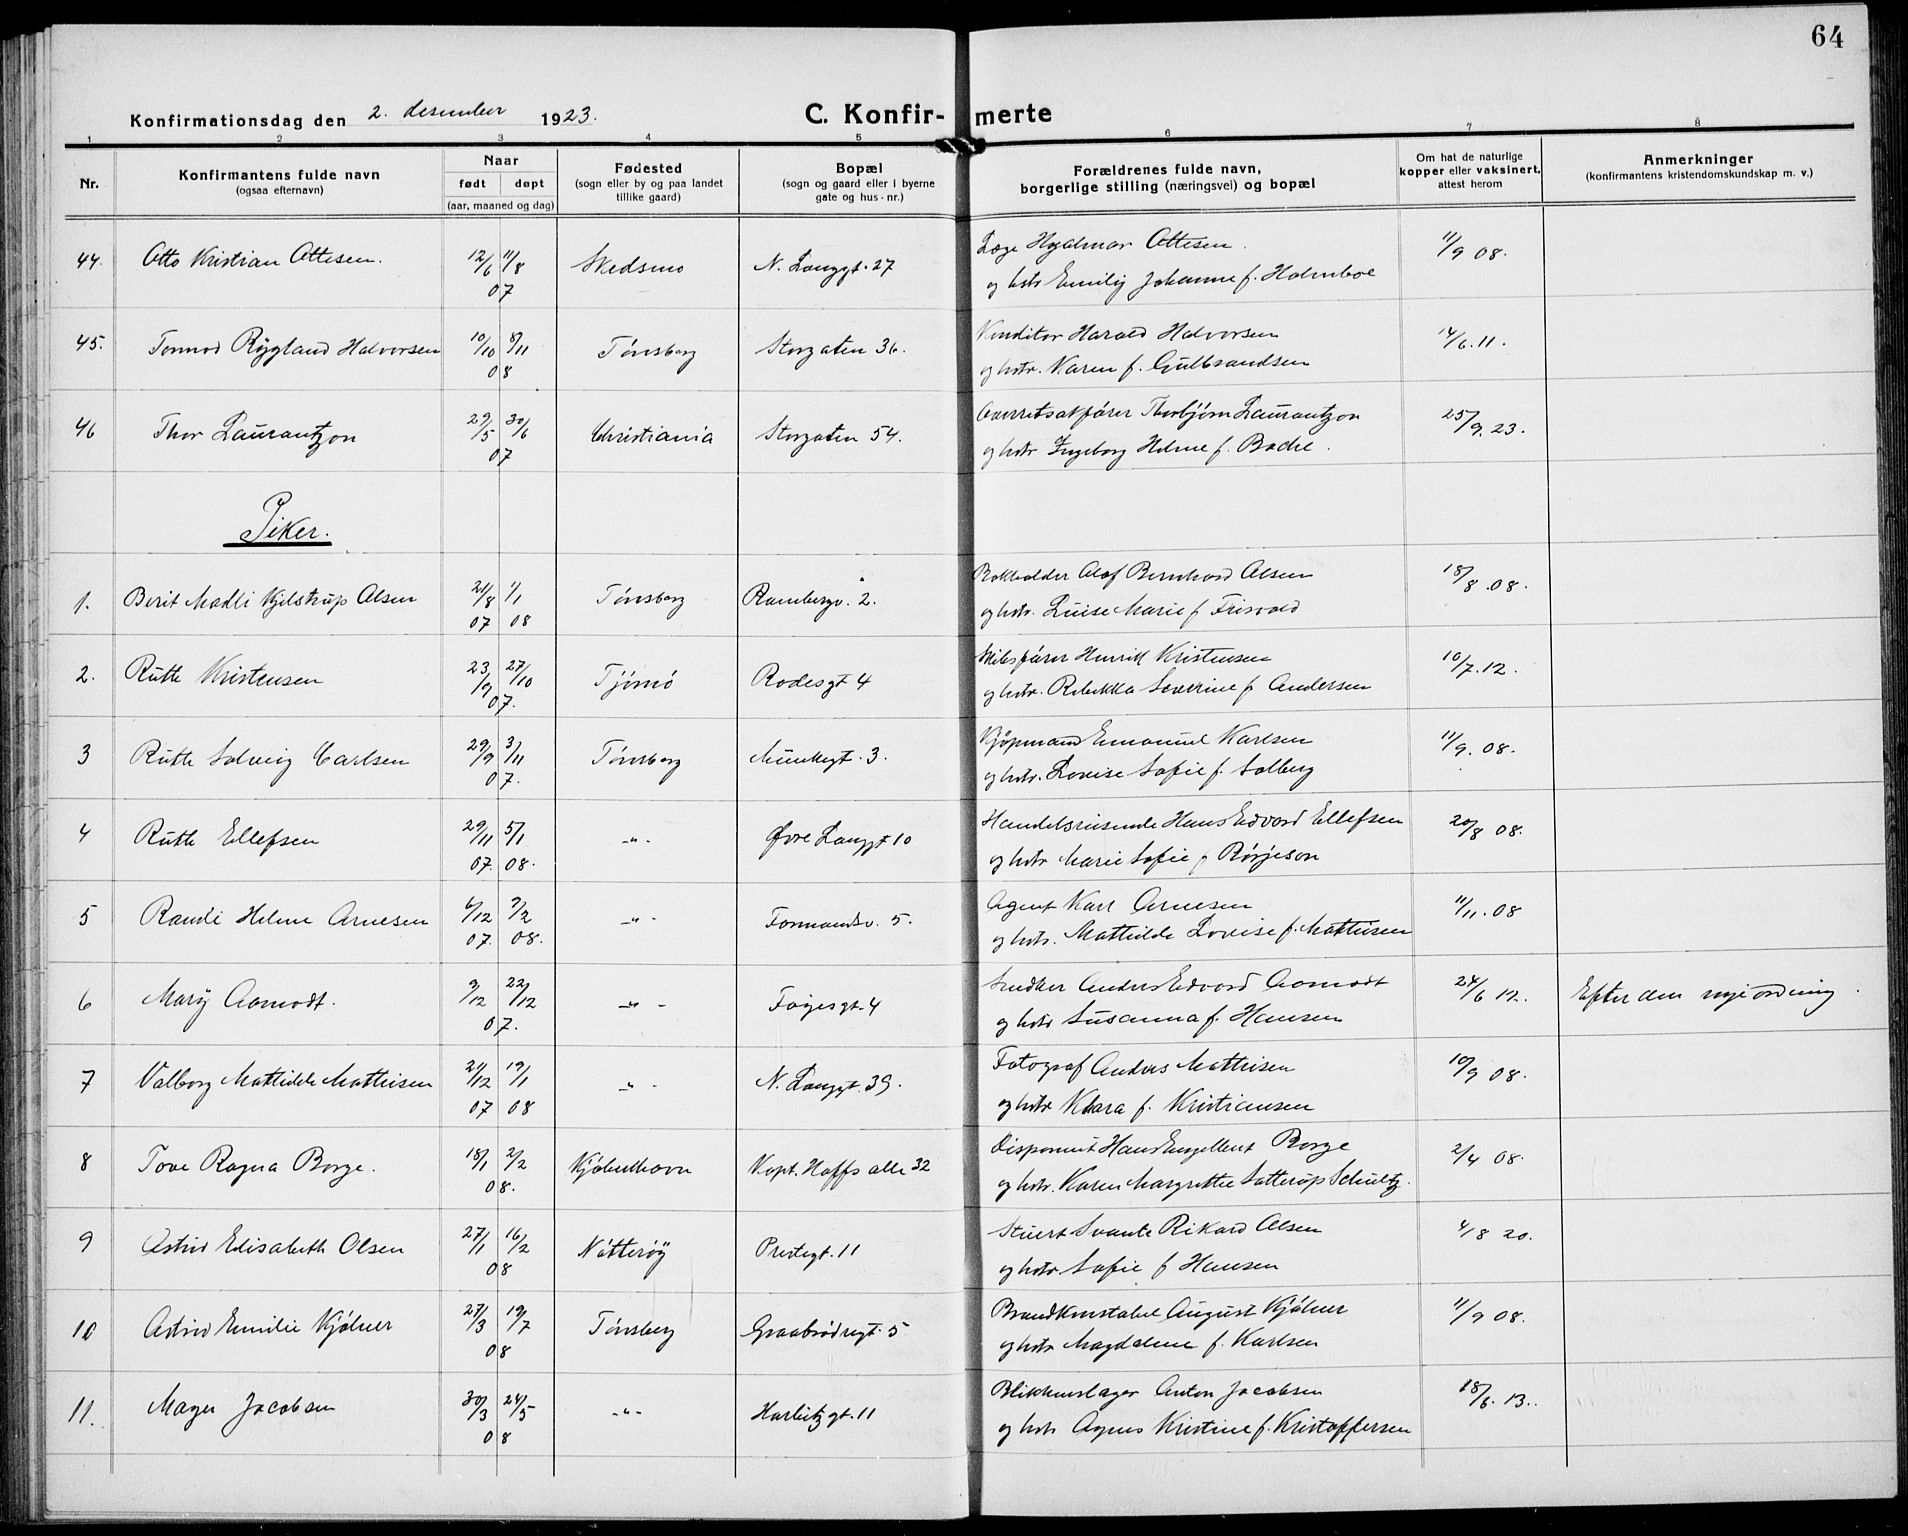 64
Konfirmationsdag den 2. desember 1923. C. Konfir- merte
1 2 3 4 5 6 7 8
Nr. Konfirmantens fulde navn (ogsaa efternavn) Naar født døpt (aar, maaned og dag) Fødested (sogn eller by og paa landet tillike gaard) Bopæl (sogn og gaard eller i byerne gate og hus-nr.) Forældrenes fulde navn, borgerlige stilling (næringsvei) og bopæl Om hat de naturlige kopper eller vaksinert, attest herom Anmerkninger (konfirmantens kristendomskundskap m. v.)
44. Otto Kristian Ottesen. 12/6 11/8 07 Skedsmo N. Langgt. 27 Læge Hjalmar Ottesen. 11/9 08.
og hstr Emilij Johanne f. Holmboe
45. Tormod Rygland Halvorsen 10/10 8/11 08 Tønsberg Storgaten 36. Konditor Harald Halvorsen 14/6. 11.
og hstr. Karen f. Gulbrandsen
46 Thor Laurantzon 29/5 30/6 07 Christiania Storgaten 54. Overretsakfører Thorbjørn Laurantzon 25/9. 23.
og hstr Ingeborg Helene f. Bache.
Piker.
1. Berit Madli Kjelstrup Olsen 21/8 07 1/1 08 Tønsberg Rambergv. 2. Bokholder Olaf Bernhard Olsen 18/8. 08.
og hstr. Luise Marie f Frisvold
2. Ruth Kristensen 23/9 27/10 07. Tjømø Rodesgt 4 Skibsfører Henrik Kristensen 10/7. 12.
og hstr. Rebekka Severine f. Andersen
3 Ruth Solveig Carlsen 29/9 3/11 07. Tønsberg Munkegt. 3. Kjøpmand Emanuel Karlsen 11/9. 08.
og hstr. Lovise Sofie f. Solberg
4 Ruth Ellefsen 29/11 07. 5/1 08. -"- Øvre Langgt 10 Handelsreisende Hans Edvard Ellefsen 20/8 08.
og hstr Marie Sofie f Børjeson
5 Randi Helene Arnesen 6/12 07. 7/2 08. -"- Formandsv. 5. Agent Karl Arnesen 11/11. 08
og hstr. Mathilde Lovise f. Mathisen
6 Mary Aamodt. 9/12 22/12 07. -"- Føyesgt. 4 Snedker Anders Edvard Aamodt 24/6 12. Efter den nye ordning.
og hstr Susanna f. Hansen
7 Valborg Mathilde Mathisen 21/12 07 19/1 08 -"- N. Langgt. 39. Fotograf Anders Mathisen 10/9 08.
og hstr Klara f. Kristiansen
8 Tove Ragna Borge. 18/1 2/2 08. Kjøbenhavn Kapt. Hoffs alle 32 Disponent Hans Engelbret Borge 2/4 08.
og hstr. Karen Margrethe Satterup Schultz.
9 Astrid Elisabeth Olsen 27/1 16/2 08 Nøtterøy Prestegt. 11 Stuert Svante Rikard Olsen 4/8 20.
og hstr. Sofie f Hansen
10 Astrid Emilie Kjølner 27/3 19/7 08 Tønsberg Graabrødregt. 5 Brandkonstabel August Kjølner 11/9 08.
og hstr Magdalene f. Karlsen
11. Mager Jacobsen 30/3 24/5 08 -"- Harbitzgt. 11 Blikkenslager Anton Jacobsen 18/6. 13.
og hstr Agnes Kristine f. Kristoffersen